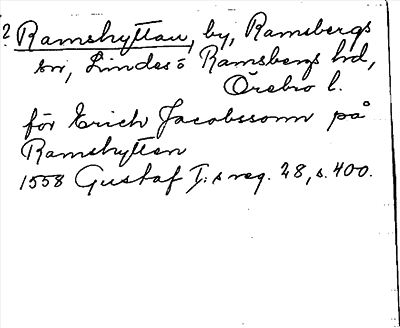 ? Ramshyttan, by, Ramsbergs
sn, Lindes o Ramsbergs hd,
Örebro l.
för Erich Jacobssonn på
Ramshytten
1558 Gustaf I:s reg. 28, s. 400.